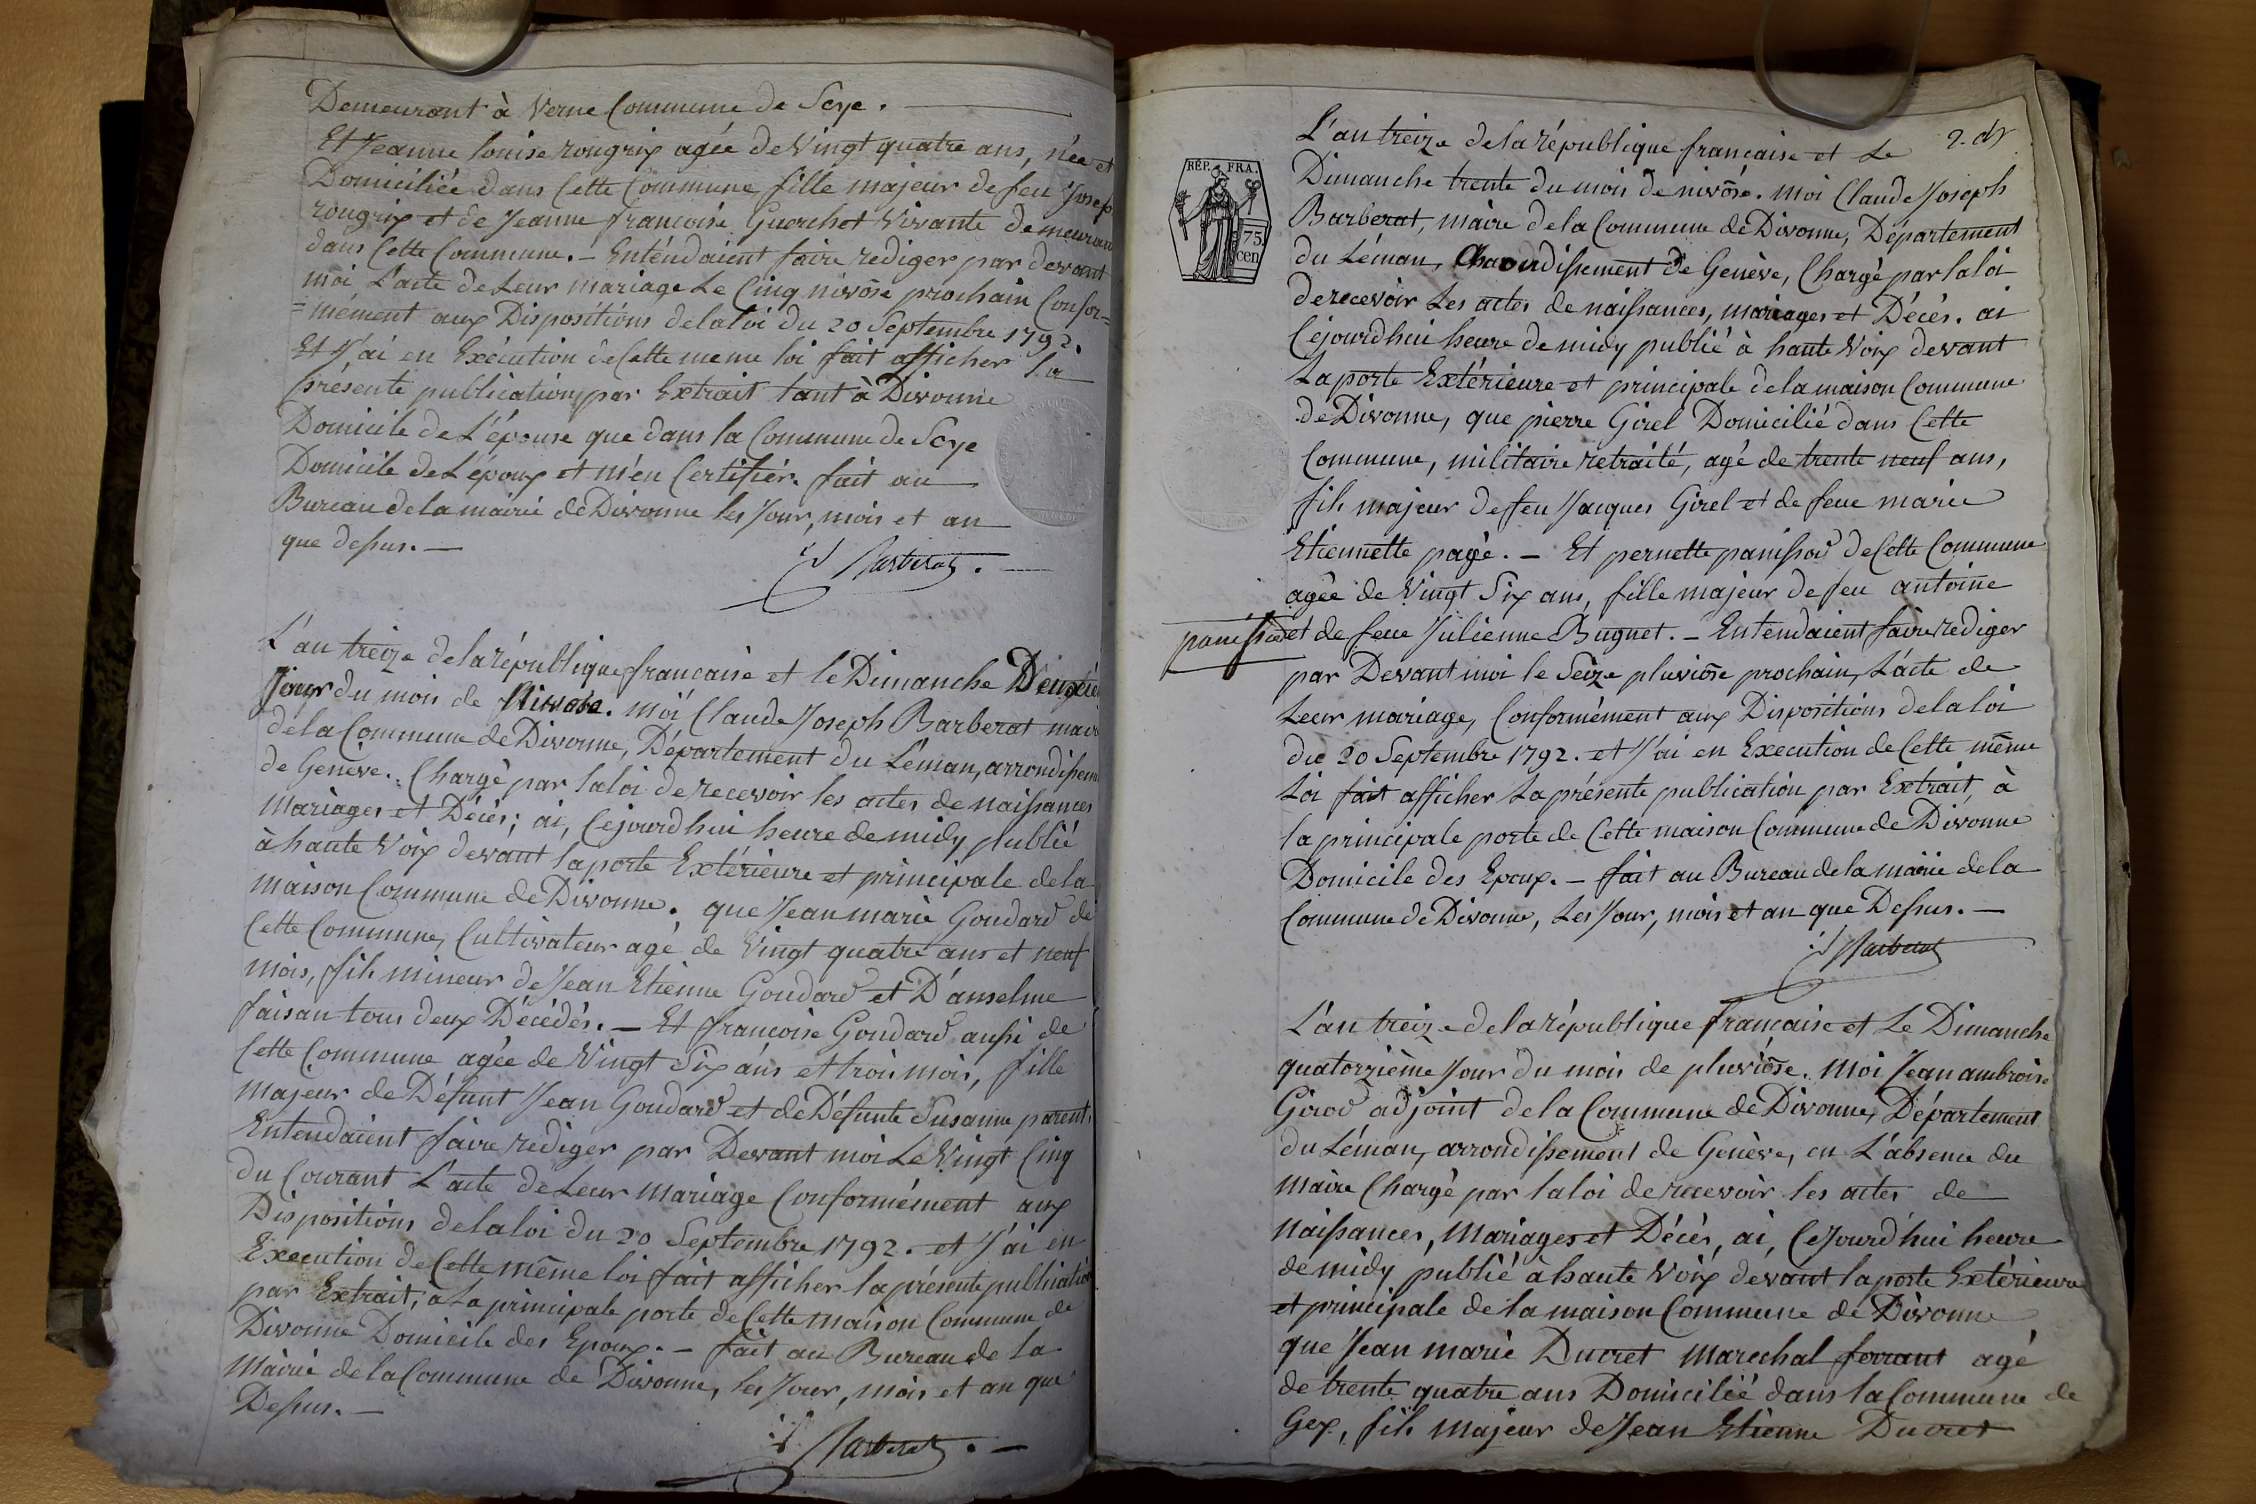 Demeurant à Verne Commune de Scye. —
Et Jeanne louise rougrix agée de Vingt quatre ans, née et
Domiciliée dans Cette Commune fille majeur de feu Josep
rougrix et de Jeanne francoise Guerchet Vivante demeuran
dans Cette Commune. — Entendaient faire rediger par devant
moi L'acte de Leur mariage Le Cinq nivôse prochain Confor=
=mément aux Dispositions de la loi du 20 Septembre 1792.
Et J'ai en Exécution de Cette meme loi fait afficher la
présente publication par Extrait tant à Divonne
Domicile de L'épouse que dans la Commune de Scye
Domicile de L'époux et m'en Certifier. fait au
Bureau de la mairie de Divonne les Jour, mois et an
que dessus. —
Barberat. —
L'an treize de la république francaise et le Dimanche Deuxiè
Jour du mois de Nivose. moi Claude Joseph Barberat mair
de la Commune de Divonne, Département du Léman, arrondissem
de Genève. Chargé par la loi de recevoir les actes de naissances
mariages et Décès; ai, Cejourd'hui heure de midy publié
à haute Voix devant la porte Extérieure et principale de la
maison Commune de Divonne. que Jean marie Goudard de
Cette Commune, Cultivateur agé de Vingt quatre ans et neuf
mois, fils mineur de Jean Etienne Goudard et D'anselme
faisan tous deux Décédés. — Et francoise Goudard aussi de
Cette Commune agée de Vingt Six ans et trois mois, fille
majeur de Défunt Jean Goudard et de Défunte Susanne parent.
Entendaient faire rediger par Devant moi Le Vingt Cinq
du Courant L'acte de Leur mariage Conformément aux
Dispositions de la loi du 20 Septembre 1792. et J'ai en
Execution de Cette même loi fait afficher la présente publication
par Extrait, à La principale porte de Cette maison Commune de
Divonne Domicile des Epoux. — fait au Bureau de la
Mairie de la Commune de Divonne, les Jour, mois et an que
Dessus. —
Barberat. —
2.
RÉP. FRA.
75
cen
L'an treize de la république francaise et Le
Dimanche trente du mois de nivôse. moi Claude Joseph
Barberat, maire de la Commune de Divonne, Département
du Léman, arrondissement de Genève, Chargé par la loi
de recevoir Les actes de naissances, mariages et Décès. ai
Cejourd'hui heure de midy publié à haute Voix devant
La porte Extérieure et principale de la maison Commune
de Divonne, que pierre Girel Domicilié dans Cette
Commune, militaire retraité, agé de trente neuf ans,
fils majeur de feu Jacques Girel et de feue marie
Etiennette page. — Et pernette panissod de Cette Commune
agée de Vingt Six ans, fille majeur de feu antoine
panissod et de feue Julienne Bugnet. — Entendaient faire rediger
par Devant moi le Seize pluviôse prochain, L'acte de
Leur mariage, Conformément aux Dispositions de la loi
du 20 Septembre 1792. et J'ai en Execution de Cette même
Loi fait afficher La présente publication par Extrait, à
la principale porte de Cette maison Commune de Divonne
Domicile des Epoux. — fait au Bureau de la mairie de la
Commune de Divonne, Les Jour, mois et an que Dessus. —
Barberat
L'an treize de la république francaise et Le Dimanche
quatorzième Jour du mois de pluviôse. moi Jean ambroise
Girod adjoint de la Commune de Divonne, Département
du Léman, arrondissement de Genève, en L'absence du
maire Chargé par la loi de recevoir les actes de
Naissances, Mariages et Décès, ai, Cejourd'hui heure
de midy publié à haute Voix devant la porte Extérieure
et principale de la maison Commune de Divonne
que Jean marie Ducret marechal ferrant agé
de trente quatre ans Domicilié dans la Commune de
Gex, fils majeur de Jean Etienne Ducret